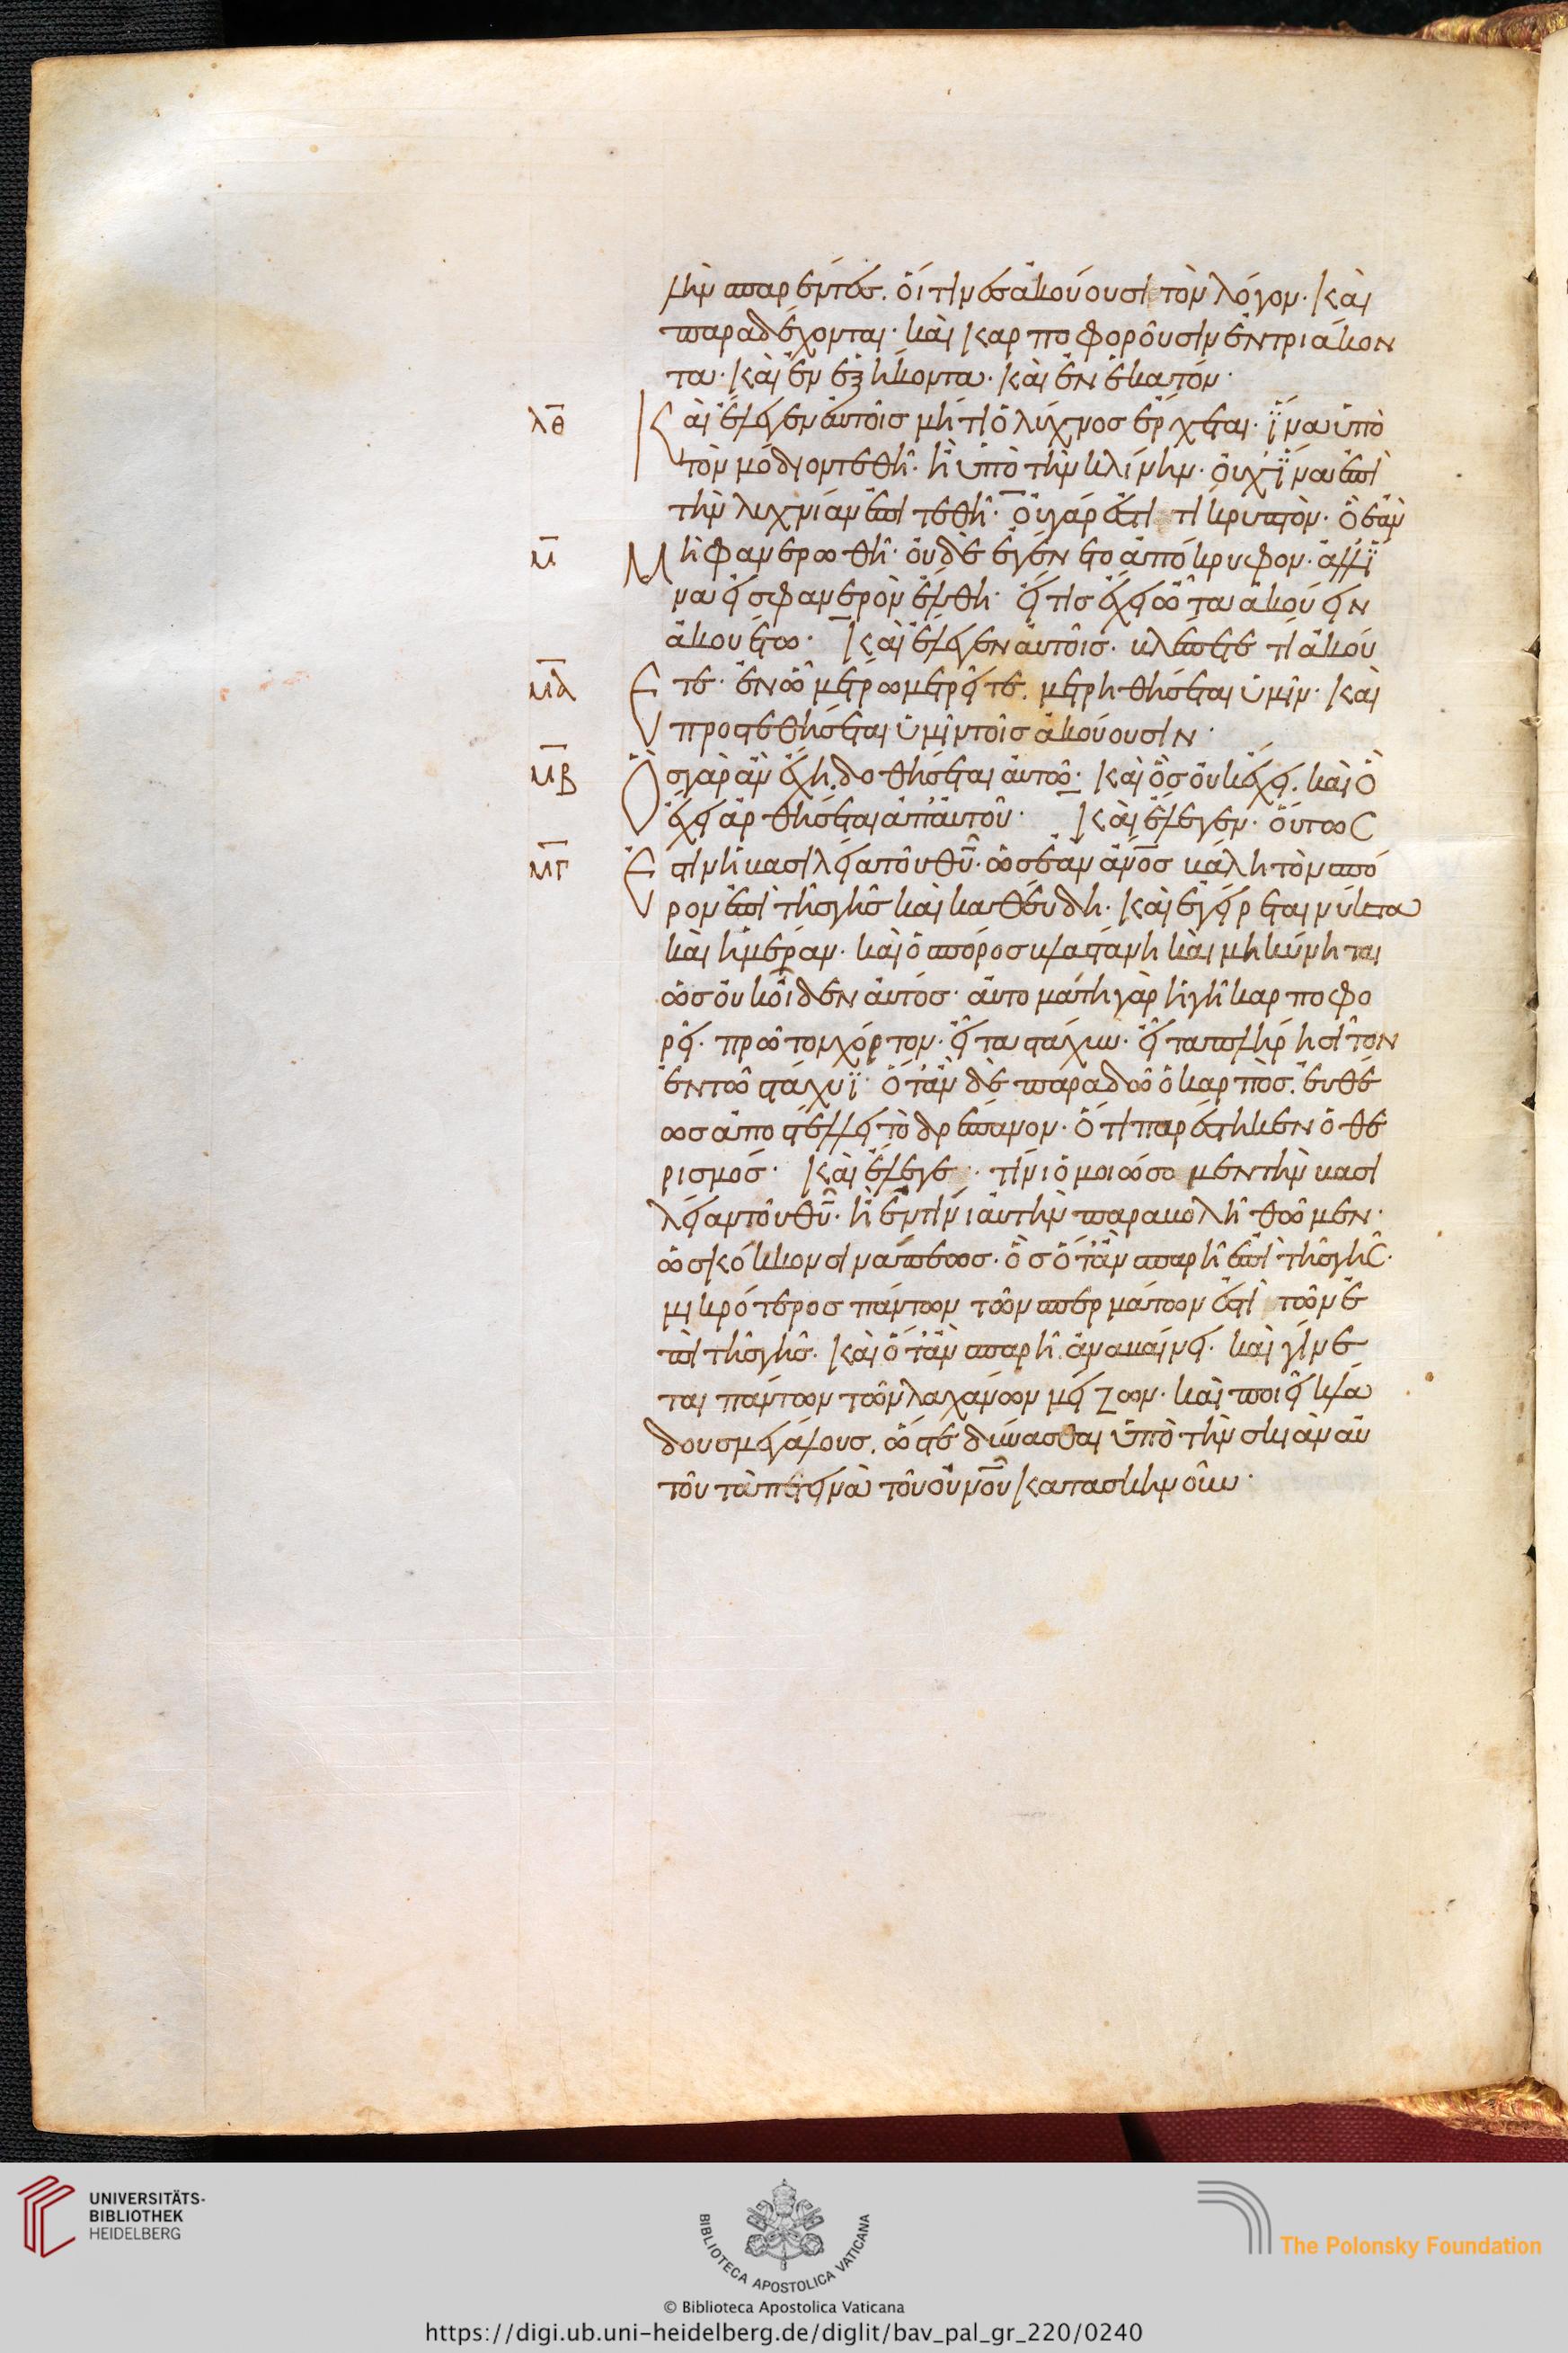 λὴν σπαρέντες. οἵτινες ἀκούουσι τὸν λόγον· καὶ
παραδέχονται· καὶ καρποφοροῦσιν ἓν τριάκον
τα· καὶ ἓν ἑξήκοντα· καὶ ἓν ἑκατόν·
λθ Καὶ ἔλεγεν αὐτοῖς μήτι ὁ λύχνος ἔρχεται· ἵνα ὑπὸ
τὸν μόδιον τεθῆ· ἢ ὑπὸ τὴν κλίνην· οὐχ' ἵνα ἐπὶ
τὴν λυχνίαν ἐπιτεθῆ· οὐ γάρ ἐστι τι κρυπτὸν· ὃ ἐὰν
μ Μὴ φανερωθῆ· οὐδὲ ἐγένετο ἀπόκρυφον· ἀλλ' ἵ
να εἰς φανερὸν ἔλθη· εἴ τις ἔχει ὦτα ἀκούειν
ἀκουέτω· Καὶ ἔλεγεν αὐτοῖς· βλέπετε τί ἀκού
μα Ετε· ἐν ᾧ μέτρω μετρεῖτε. μετρηθήσεται ὑμῖν· καὶ
προστεθήσεται ὑμῖν τοῖς ἀκούουσιν·
μβ Ὃς γὰρ ἂν ἔχη. δοθήσεται αὐτῶ· καὶ ὃς οὐκ ἔχει. καὶ ὃ
ἔχει ἀρθήσεται ἀπ' αὐτοῦ· Καὶ ἔλεγεν· οὕτως
μγ Ἐστιν ἡ βασιλεία τοῦ θυ· ὡς ἐὰν ἄνος βάλη τὸν σπό
ρον ἐπὶ τῆς γῆς καὶ καθεύδη· καὶ ἐγείρεται νύκτα
καὶ ἡμέραν· καὶ ὁ σπόρος βλαστάνη καὶ μηκύνηται
ὡς οὐκ οἶδεν αὐτός· αὐτομάτη γὰρ ἡ γῆ καρποφο
ρεῖ· πρῶτον χόρτον· εἶτα στάχυν· εἶτα πλήρη σῖτον
ἐν τῶ στάχυϊ· ὅταν δὲ παραδῶ ὁ καρπὸς. εὐθέ
ως ἀποστέλλει τὸ δρέπανον· ὅτι παρέστηκεν ὁ θε
ρισμός· Καὶ ἔλεγε· τίνι ὁμοιώσομεν τὴν βασι
λείαν τοῦ θυ· ἢ ἐν τίνι αὐτὴν παραβολῆ θῶμεν·
ὡς κόκκον σινάπεως· ὃς ὅταν σπαρῆ ἐπὶ τῆς γῆς·
μικρότερος πάντων τῶν σπερμάτων ἐστὶ τῶν ἐ
πὶ τῆς γῆς· καὶ ὅταν σπαρῆ. ἀναβαίνει· καὶ γίνε
ται πάντων τῶν λαχάνων μείζων· καὶ ποιεῖ κλά
δους μεγάλους. ὥστε δύνασθαι ὑπὸ τὴν σκιὰν αὐ
τοῦ τὰ πετεινὰ τοῦ οὐνοῦ κατασκηνοῦν·
UNIVERSITÄTS-
BIBLIOTHEK
HEIDELBERG
BIBLIOTECA APOSTOLICA VATICANA
The Polonsky Foundation
© Biblioteca Apostolica Vaticana
https://digi.ub.uni-heidelberg.de/diglit/bav_pal_gr_220/0240